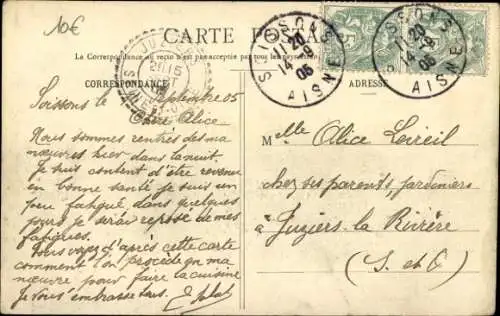 10€
CARTE POSTALE
La Correspondance au recto n'est pas acceptée par tous les pays étrangers
CORRESPONDANCE
ADRESSE
SOISSONS
11 20
14 -9
05
AISNE
SOISSONS
11 20
14 -9
05
AISNE
Soissons 14 Septembre 05
Chère Alice
Nous sommes rentrés des ma
nœuvres hier dans la nuit.
Je suis content d'être revenu
en bonne santé je suis un
peu fatigué dans quelques
jours je serai reposé de mes
fatigues.
Vous voyez d'après cette carte
comment l'on procède en ma
nœuvre pour faire la cuisine
Je vous embrasse tous.
Melle Alice
chez ses parents, jardiniers
à Juziers la Rivière
(S. et O)